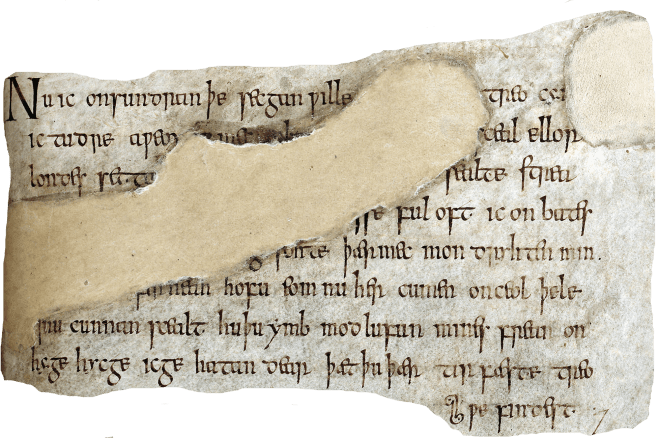 Nu ic onsundran þe secgan ƿille treo
ic tudre aƿeox sceal ellor
londes sealte strea
sse ful oft ic on bates
sohte þær mec mon dryhten min.
heah hofu eom nu her cumen on ceol þele
nu cunnan scealt hu þu ymb modlufan mines frean on
hyge hycge ic ge hatan dear þæt þu þær tir fæste treo
ƿe findest.